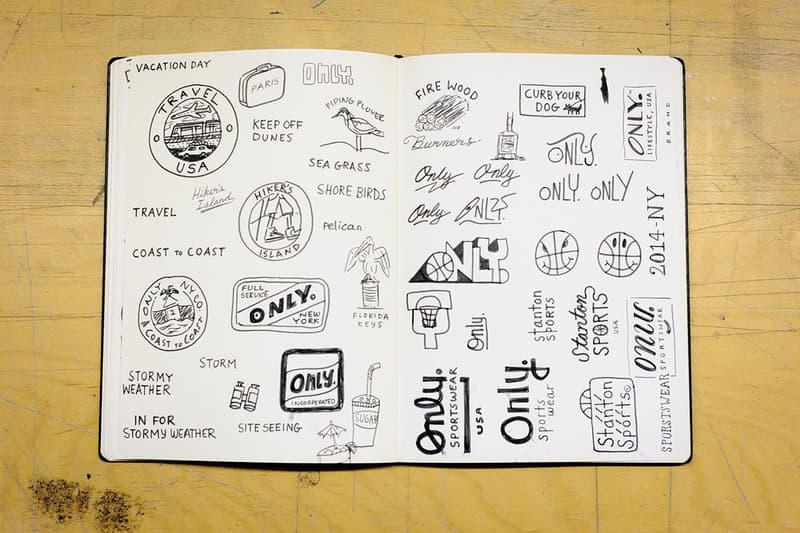 VACATION DAY
PARIS
ONLY.
TRAVEL
USA
KEEP OFF
DUNES
PIPING PLOVER
SEA GRASS
Hiker's
Island
HIKER'S
ISLAND
SHORE BIRDS
TRAVEL
pelican
COAST TO COAST
ONLY NY CO
A COAST TO COAST
FULL
SERVICE
ONLY.
NEW
YORK
FLORIDA
KEYS
STORM
STORMY
WEATHER
ONLY.
INCORPORATED
SUGAR
IN FOR
STORMY WEATHER
SITE SEEING
FIRE WOOD
Burners
CURB YOUR
DOG
ONLY.
LIFESTYLE, USA
BRAND
ONLY.
Only
Only
Only
ONLY.
ONLY. ONLY
2014-NY
ONLY.
Only.
Stanton
SPORTS
Stanton
SPORTS
USA
ONLY.
SPORTSWEAR
Only.
SPORTSWEAR
USA
Only.
sports
wear
Stanton
Sports
SPORSTSWEAR